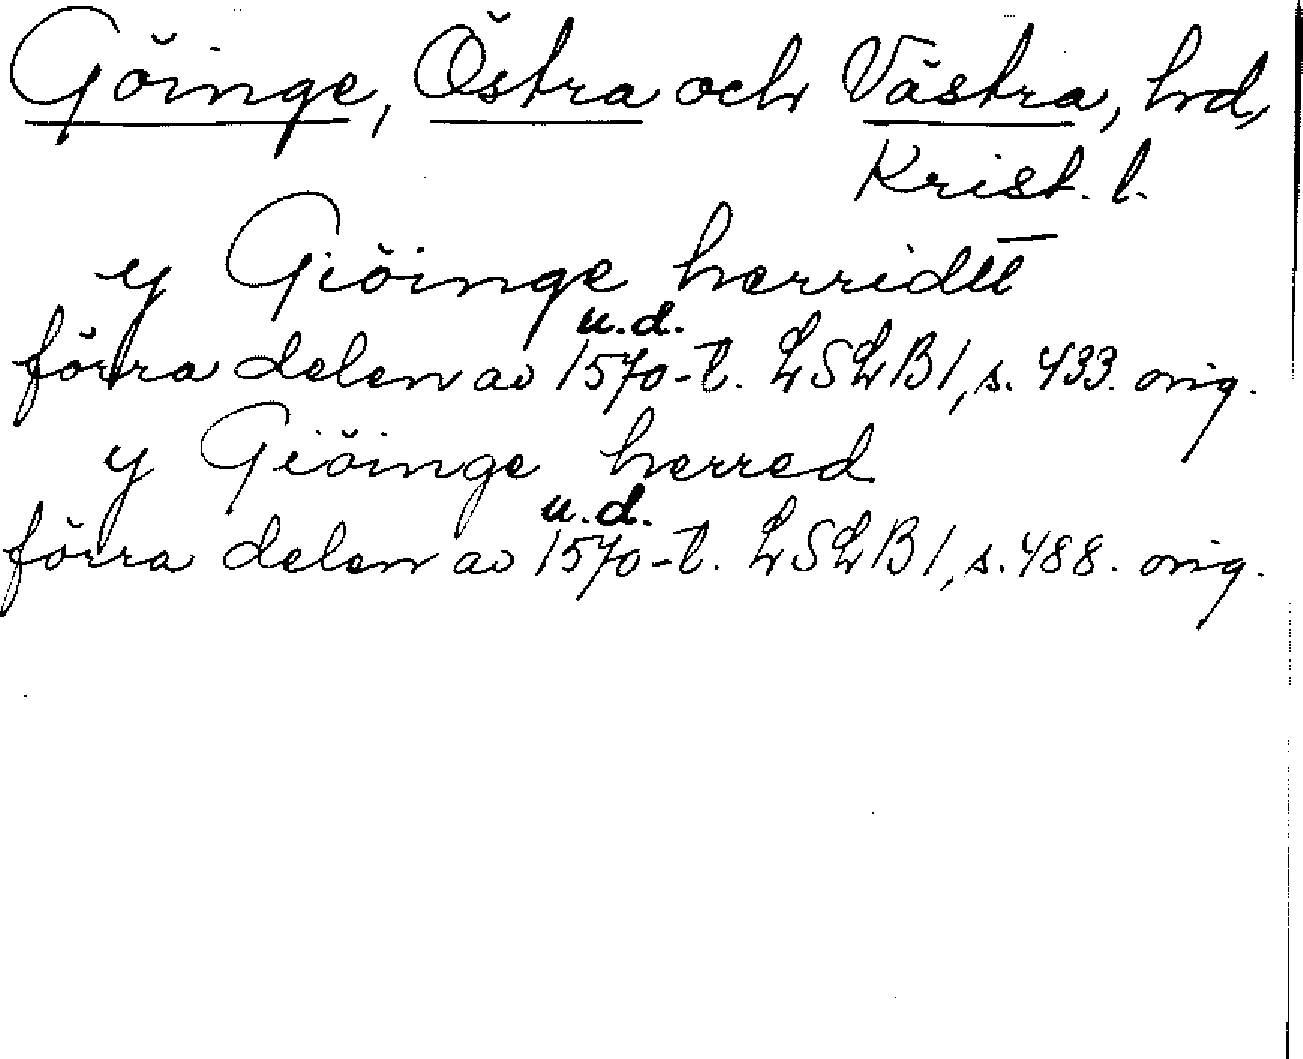 Göinge, Östra och Västra, hrd,
Krist. l.
y Giöinge herridtt
u.d.
förra delen av 1570-t. LSLB 1, s. 433. orig.
y Giöinge herred
u.d.
förra delen av 1570-t. LSLB 1, s. 488. orig.